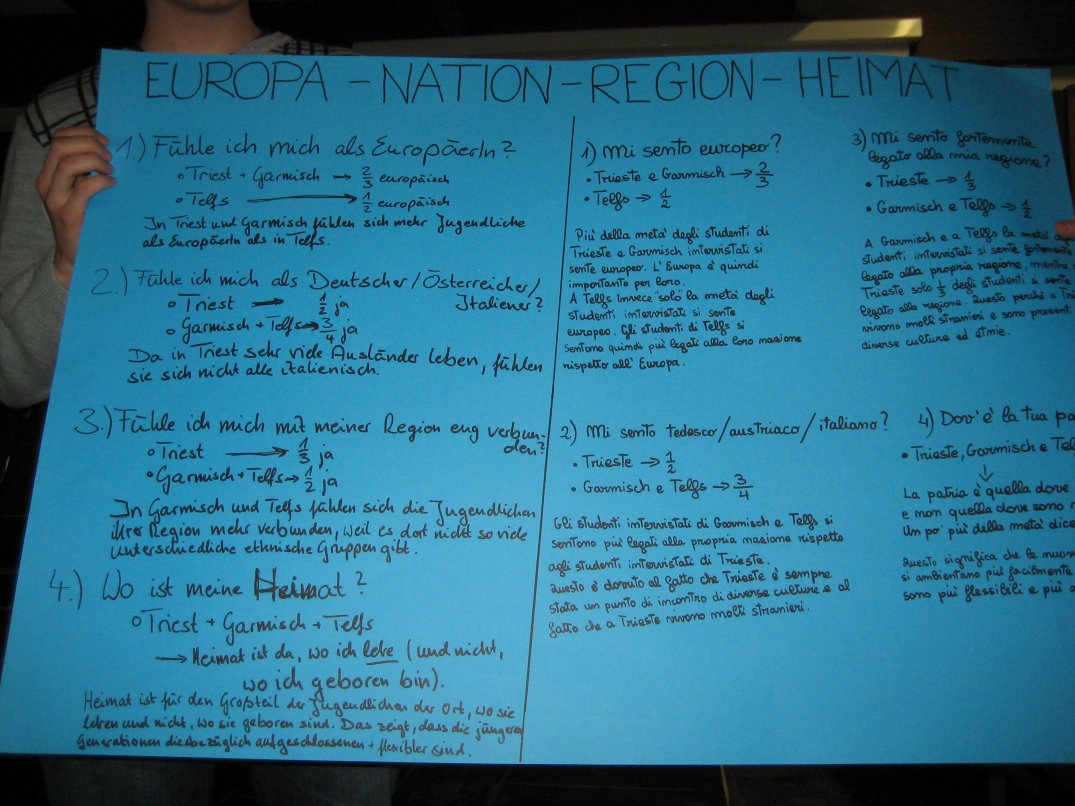 EUROPA - NATION - REGION - HEIMAT
1.) Fühle ich mich als EuropäerIn?
• Triest + Garmisch → 2/3 europäisch
• Telfs → 1/2 europäisch
In Triest und Garmisch fühlen sich mehr Jugendliche
als EuropäerIn als in Telfs.
2.) Fühle ich mich als Deutscher/Österreicher/
Italiener?
• Triest → 1/2 ja
• Garmisch + Telfs → 3/4 ja
Da in Triest sehr viele Ausländer leben, fühlen
sie sich nicht alle italienisch.
3.) Fühle ich mich mit meiner Region eng verbun-
den?
• Triest → 1/3 ja
• Garmisch + Telfs → 1/2 ja
In Garmisch und Telfs fühlen sich die Jugendlichen
ihrer Region mehr verbunden, weil es dort nicht so viele
unterschiedliche ethnische Gruppen gibt.
4.) Wo ist meine Heimat?
• Triest + Garmisch + Telfs
→ Heimat ist da, wo ich lebe (und nicht,
wo ich geboren bin).
Heimat ist für den Großteil der Jugendlichen der Ort, wo sie
leben und nicht, wo sie geboren sind. Das zeigt, dass die jüngeren
Generationen diesbezüglich aufgeschlossenen + flexibler sind.
1) Mi sento europeo?
• Trieste e Garmisch → 2/3
• Telfs → 1/2
Più della metà degli studenti di
Trieste e Garmisch intervistati si
sente europeo. L'Europa è quindi
importante per loro.
A Telfs invece "solo" la metà degli
studenti intervistati si sente
europeo. Gli studenti di Telfs si
sentono quindi più legati alla loro nazione
rispetto all'Europa.
2) Mi sento tedesco/austriaco/italiano?
• Trieste → 1/2
• Garmisch e Telfs → 3/4
Gli studenti intervistati di Garmisch e Telfs si
sentono più legati alla propria nazione rispetto
agli studenti intervistati di Trieste.
Questo è dovuto al fatto che Trieste è sempre
stata un punto di incontro di diverse culture e al
fatto che a Trieste vivono molti stranieri.
3) Mi sento fortemente
legato alla mia regione?
• Trieste → 1/3
• Garmisch e Telfs → 1/2
A Garmisch e a Telfs la metà
studenti intervistati si sente fortemente
legato alla propria regione, mentre
Trieste solo 1/3 degli studenti si sente
legato alla regione. Questo perché a
vivono molti stranieri e sono presenti
diverse culture ed etnie.
4) Dov'è la tua
• Trieste, Garmisch e
↓
La patria è quella dove
e non quella dove sono
Un po' più della metà
Questo significa che le
si ambientano più facilmente
sono più flessibili e più